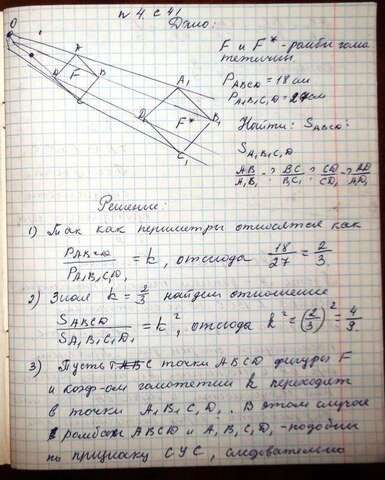 № 4. с 41
Дано:
O
F и F* - ромбы гомо
тетичны.
P ABCD = 18 см
P A₁B₁C₁D₁ = 27 см
Найти: S ABCD :
S A₁B₁C₁D
A
B
C
D
F
A₁
B₁
C₁
D₁
F*
AB/A₁B₁ ; BC/B₁C₁ ; CD/CD₁ ; AD/AD₁
Решение:
1) Так как периметры относятся как
P ABCD / P A₁B₁C₁D₁ = k, отсюда 18/27 = 2/3.
2) Зная k = 2/3 найдем отношение
S ABCD / S A₁B₁C₁D₁ = k², отсюда k² = (2/3)² = 4/9.
3) Пусть точки ABCD фигуры F
и коэф-ом гомотетии k переходят
в точки A₁B₁C₁D₁. В этом случае
ромбы ABCD и A₁B₁C₁D₁ - подобны
по признаку СУС, следовательно